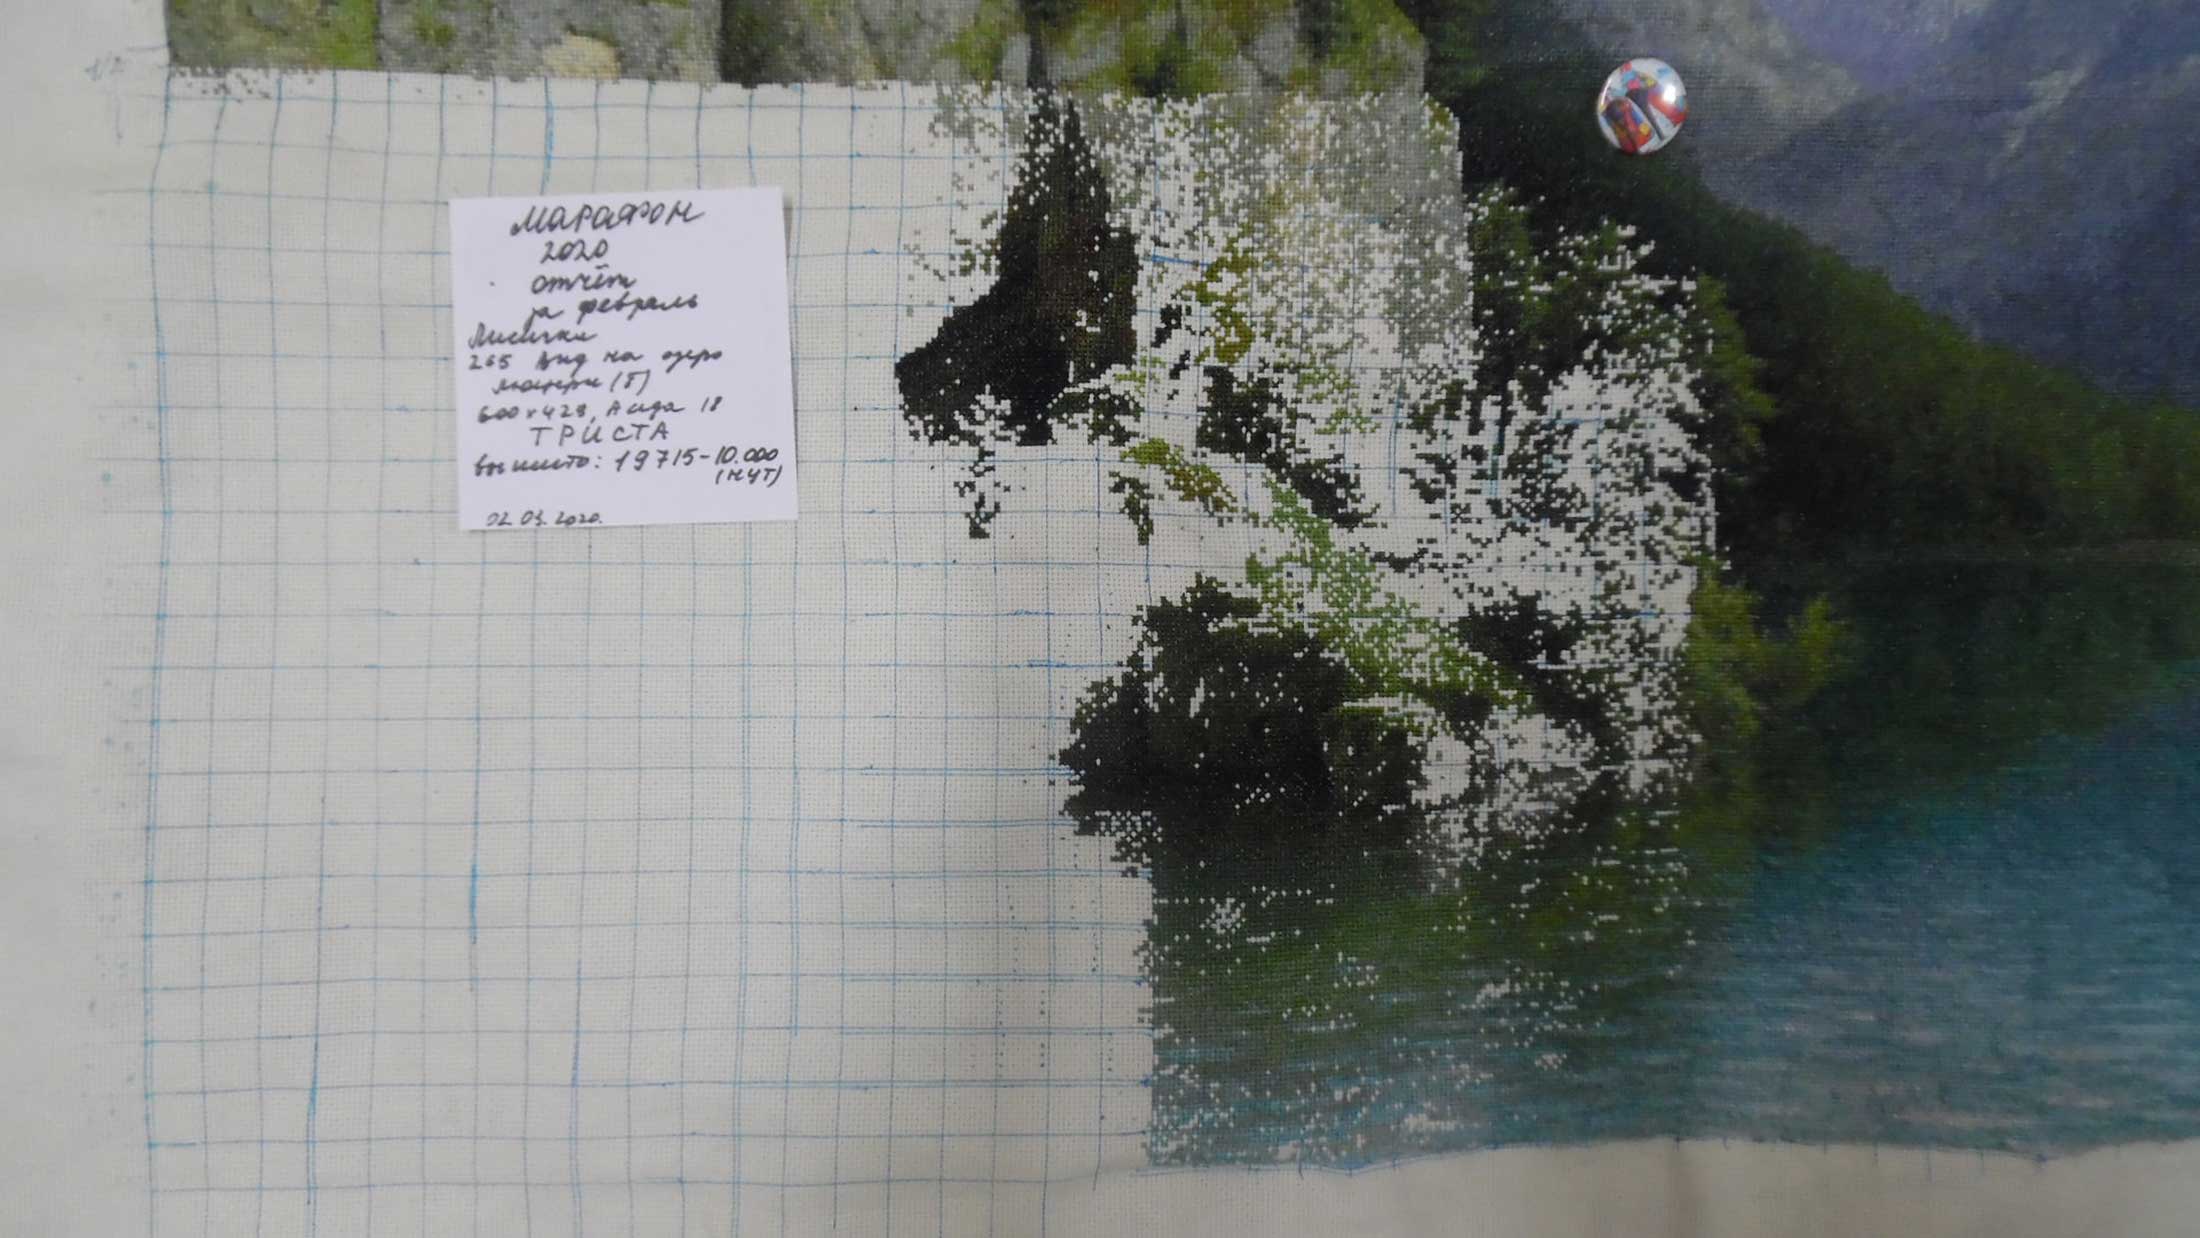 Марафон
2020
отчёт
за февраль
Лисички
265 Вид на озеро
(5)
600x428, Аида 18
ТРИСТА
вышито: 19715-10.000
(НЧТ)
02.03.2020.
1/2